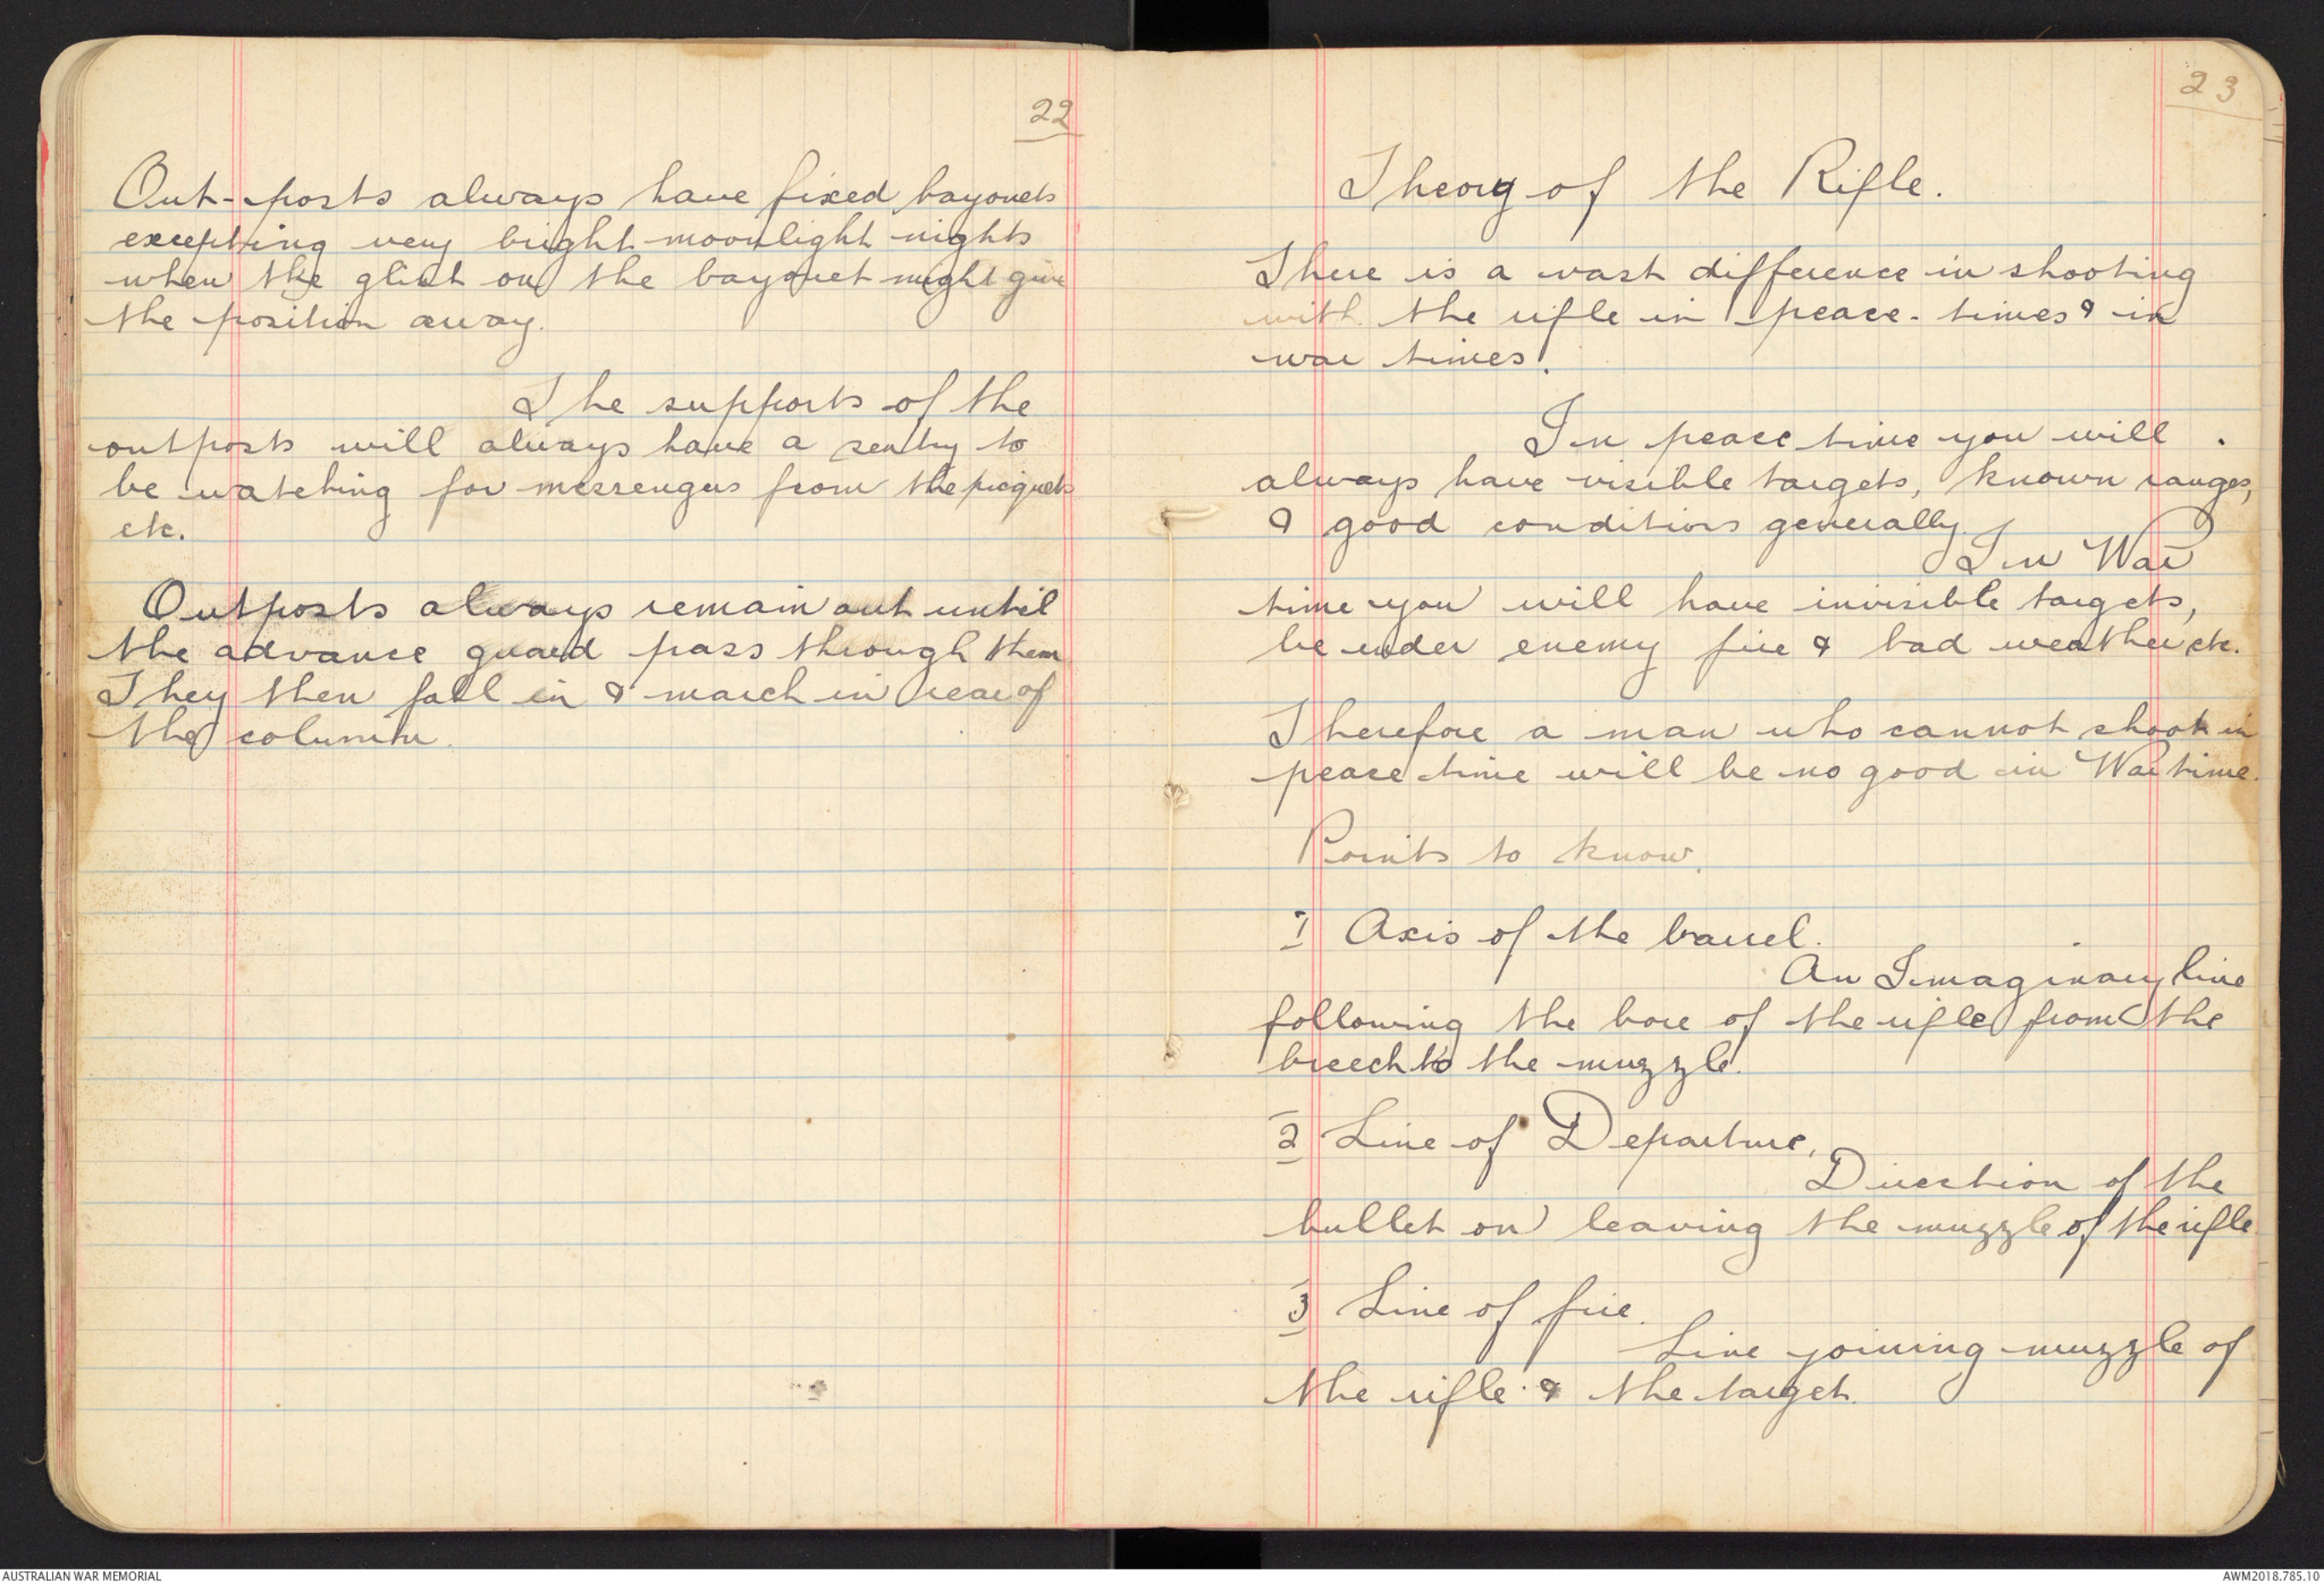 22
Out-posts always have fixed bayonets
excepting very bright moonlight nights
when the glint on the bayonet might give
the position away.
The supports of the
outposts will always have a sentry to
be watching for messengers from the picquets
etc.
Outposts always remain out until
the advance guard pass through them
They then fall in & march in rear of
the column.
23
Theory of the Rifle.
There is a vast difference in shooting
with the rifle in peace-times & in
war times.
In peace time you will
always have visible targets, known ranges,
& good conditions generally.
In War
time you will have invisible targets,
be under enemy fire & bad weather etc.
Therefore a man who cannot shoot in
peace time will be no good in War time.
Points to know.
1 Axis of the barrel.
An Imaginary line
following the bore of the rifle from the
breech to the muzzle.
2 Line of Departure,
Direction of the
bullet on leaving the muzzle of the rifle
3 Line of fire.
Line joining muzzle of
the rifle & the target.
AUSTRALIAN WAR MEMORIAL
AWM2018.785.10